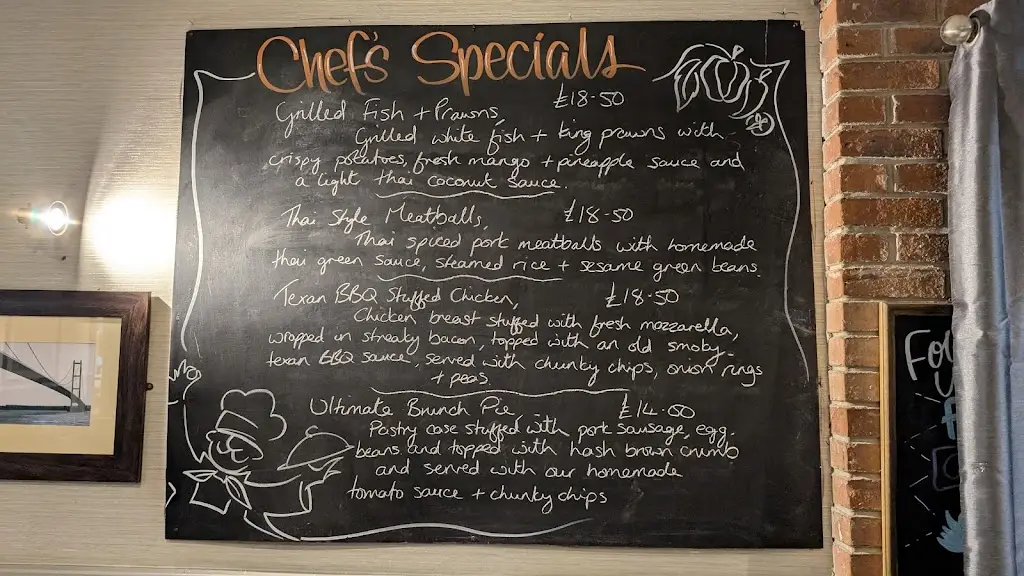 Chef's Specials
Grilled Fish + Prawns, £18-50
Grilled white fish + king prawns with
crispy potatoes, fresh mango + pineapple sauce and
a light thai coconut sauce.
Thai Style Meatballs, £18-50
Thai spiced pork meatballs with homemade
thai green sauce, steamed rice + sesame green beans.
Texan BBQ Stuffed Chicken, £18-50
Chicken breast stuffed with fresh mozzarella,
wrapped in streaky bacon, topped with an old smoky
texan BBQ sauce, served with chunky chips, onion rings
+ peas
Ultimate Brunch Pie, £14-50
Pastry case stuffed with pork sausage, egg,
beans and topped with hash brown crumb
and served with our homemade
tomato sauce + chunky chips